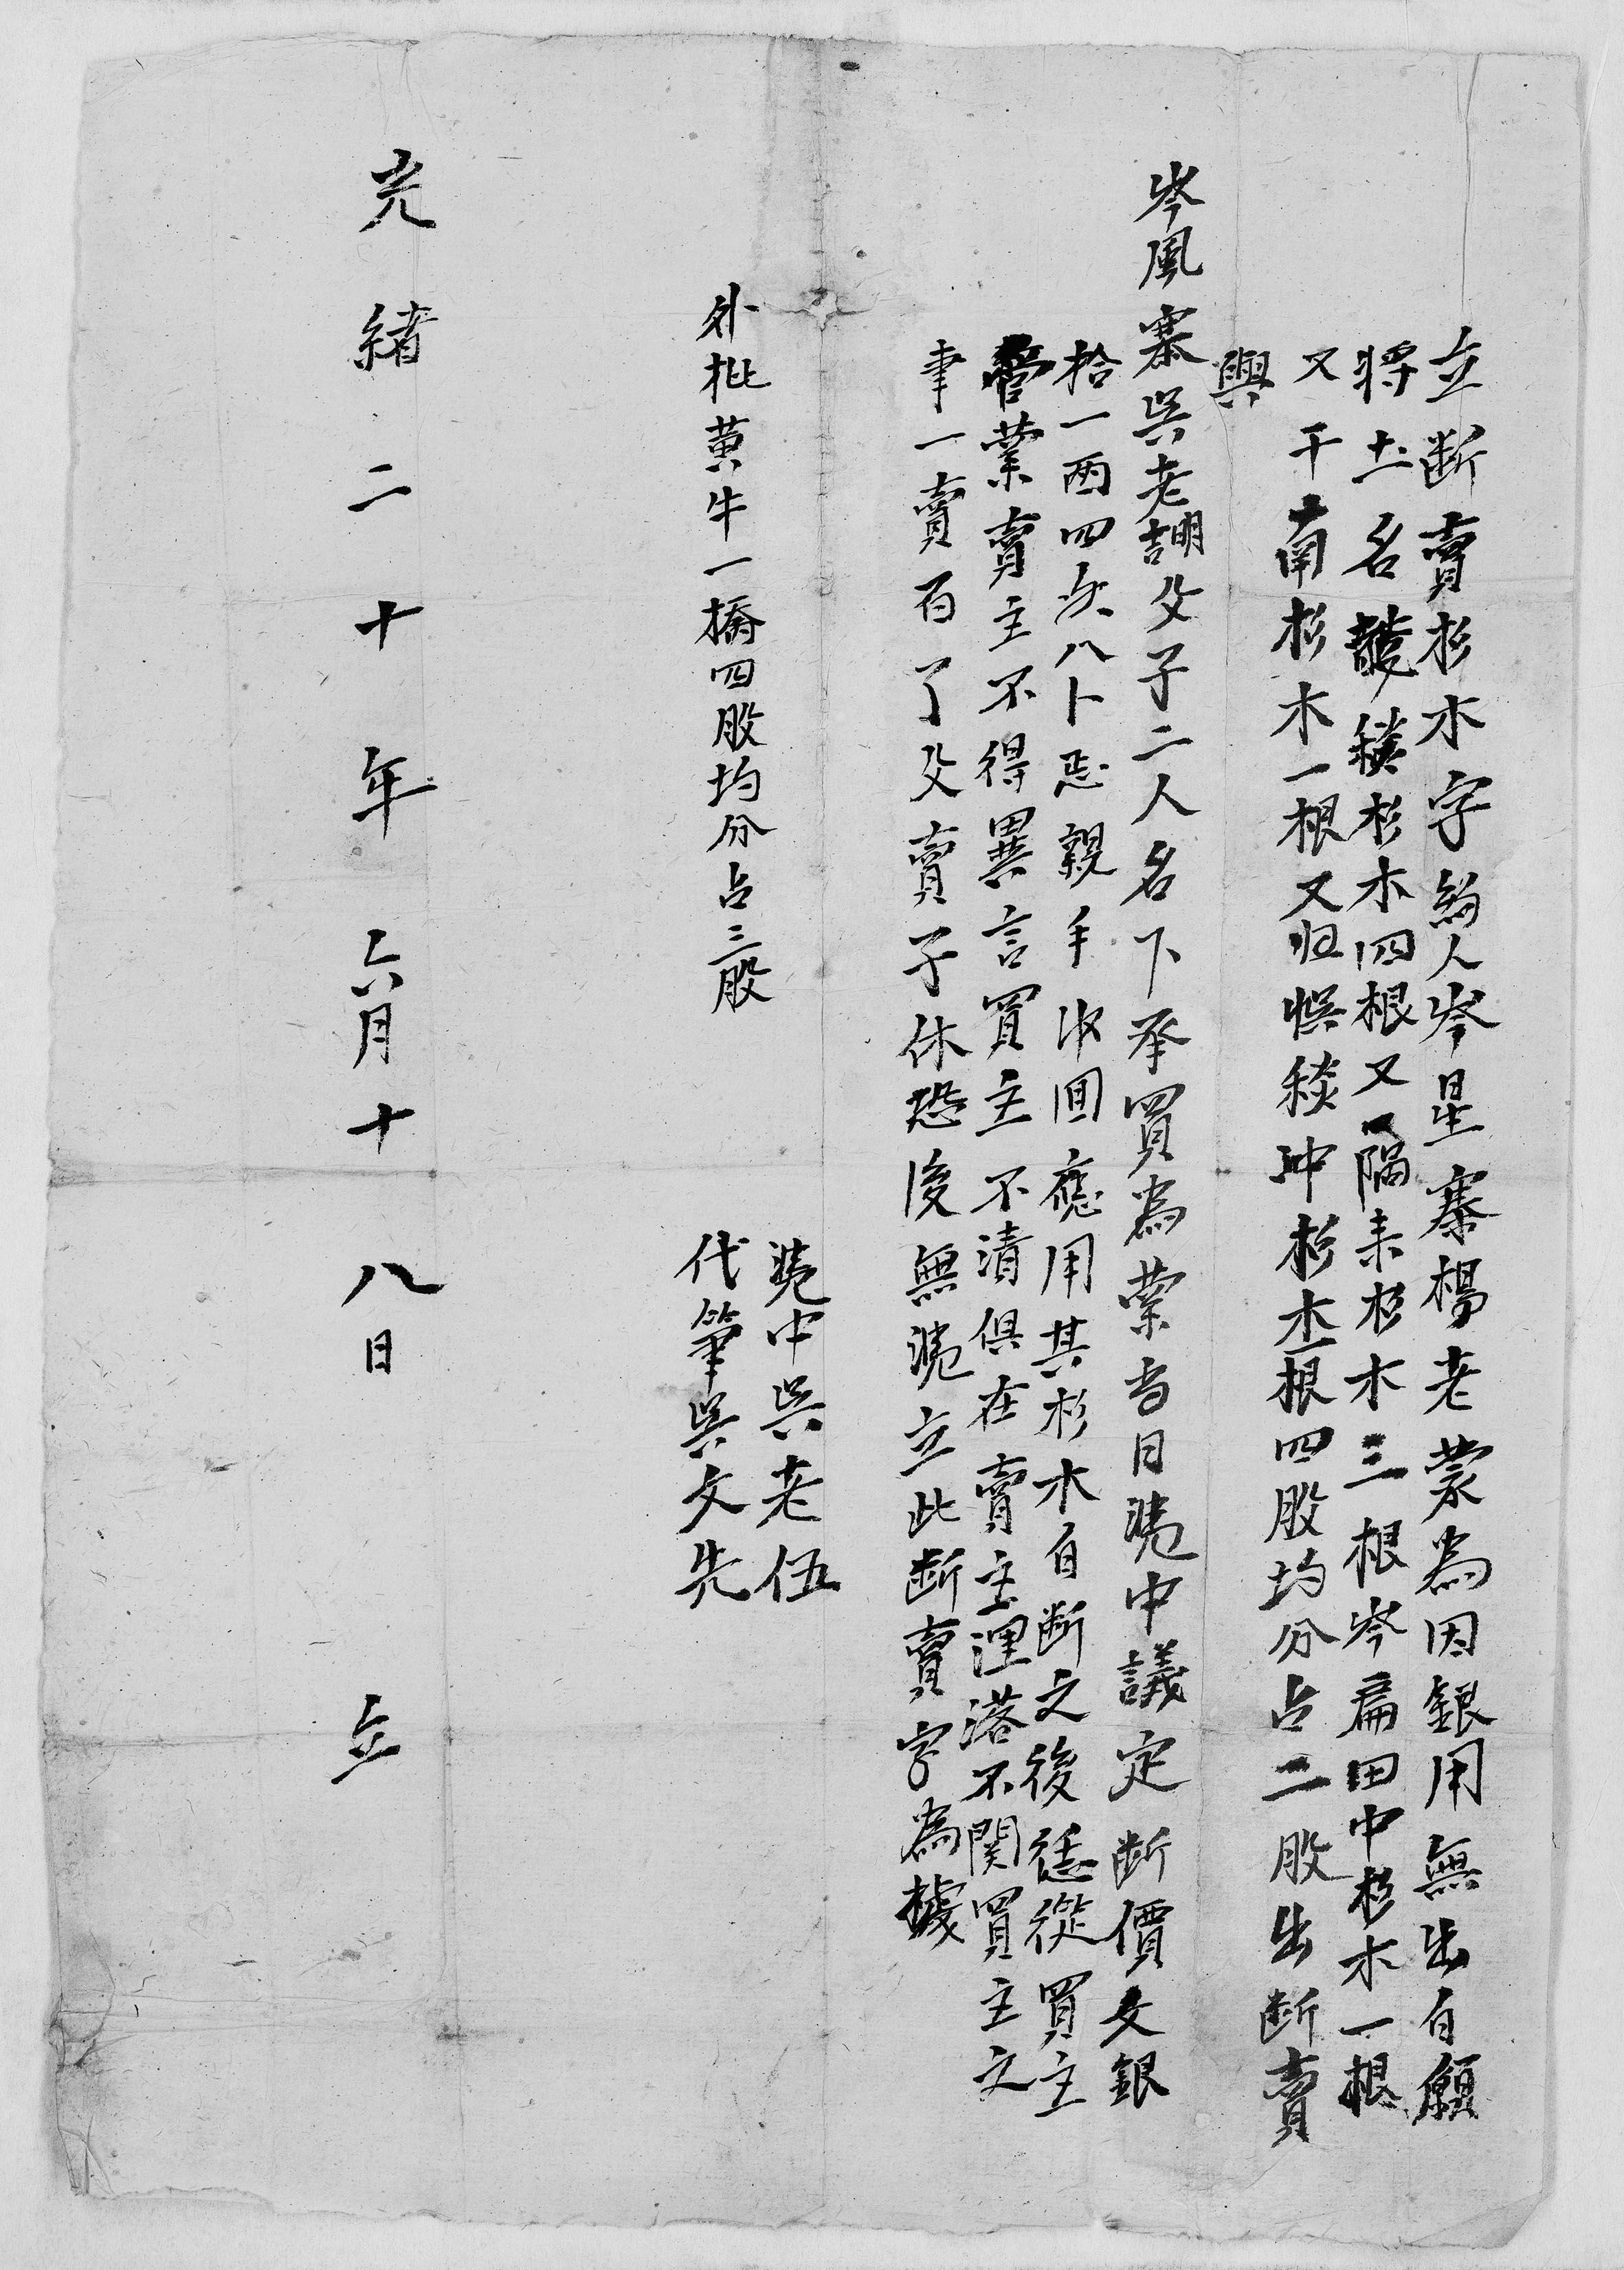 立断賣杉木字約人岑星寨楊老蒙為因銀用無出自願
将土名杉木四根又隔耒杉木三根岑扁田中杉木一根
又干南杉木一根又归悮冲杉木一根四股均分占二股出断賣
與
岑風寨吳老謿父子二人名下承買為業当日凴中議定断價文銀
拾一両四八卜親手收囬應用其杉木自断之後恁從買主
管業賣主不得異言買主不清俱在賣主理落不関買主之
事一賣百了父賣子休恐後無凴立此断賣字為據
外批黄牛一四股均分占三股
凴中吳老伍
代筆吳文先
光緒二十年六月十八日立